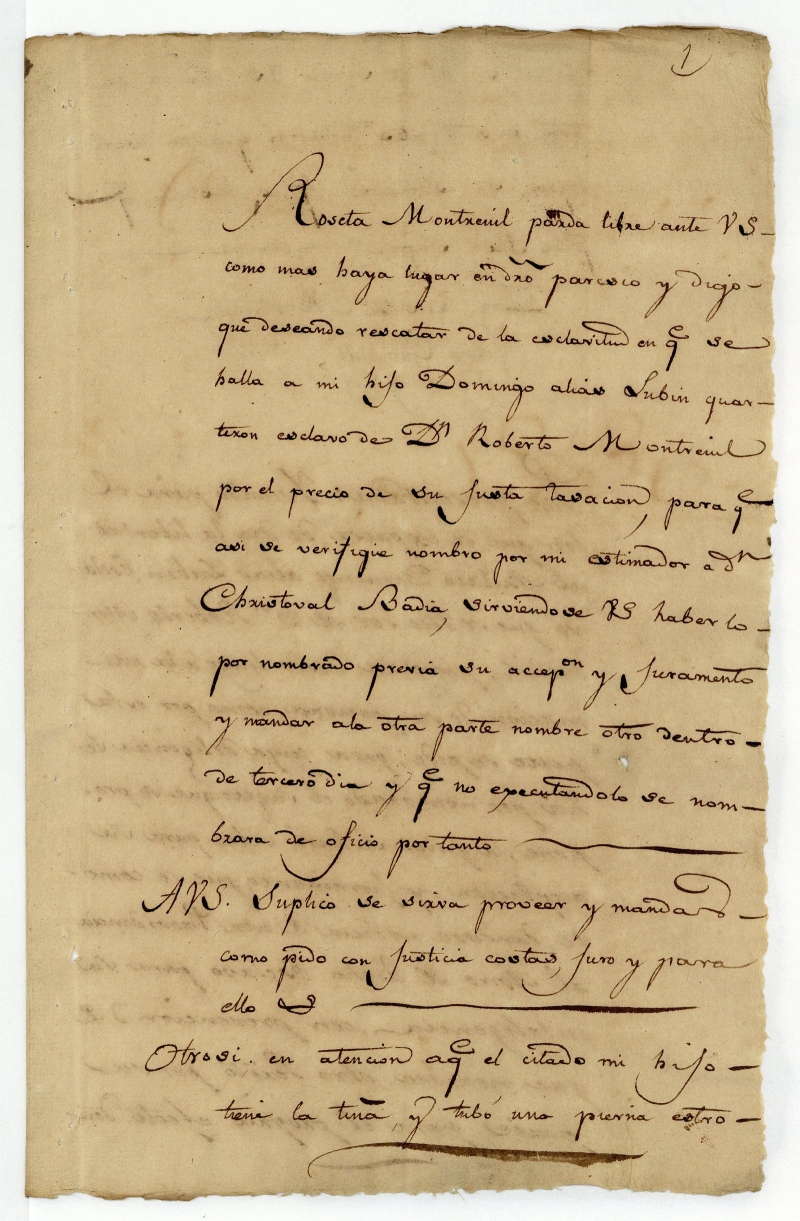 1
Roseta Montreuil parda libre ante VS–
como mas haya lugar en dro paresco y digo–
que deseando rescatar de la esclavitud en qe se
halla a mi hijo Domingo alias Lubin quar–
teron esclavo de Dn Roberto Montreuil
por el precio de su justa tasacion, para qe
asi se verifique nombro por mi estimador a dn
Christoval Badia, sirviendose VS haberlo–
por nombrado previa su accepon y juramento
y mandar ala otra parte nombre otro dentro–
de tercero dia y qe no executandolo se nom–
brara de oficio por tanto
A VS. Suplico se sirva proveer y mandar–
como pido con justicia costas, juro y para
ello S
Otrosi. en atencion aqe el citado mi hijo–
tiene la tiña, y tubó una pierna estro–